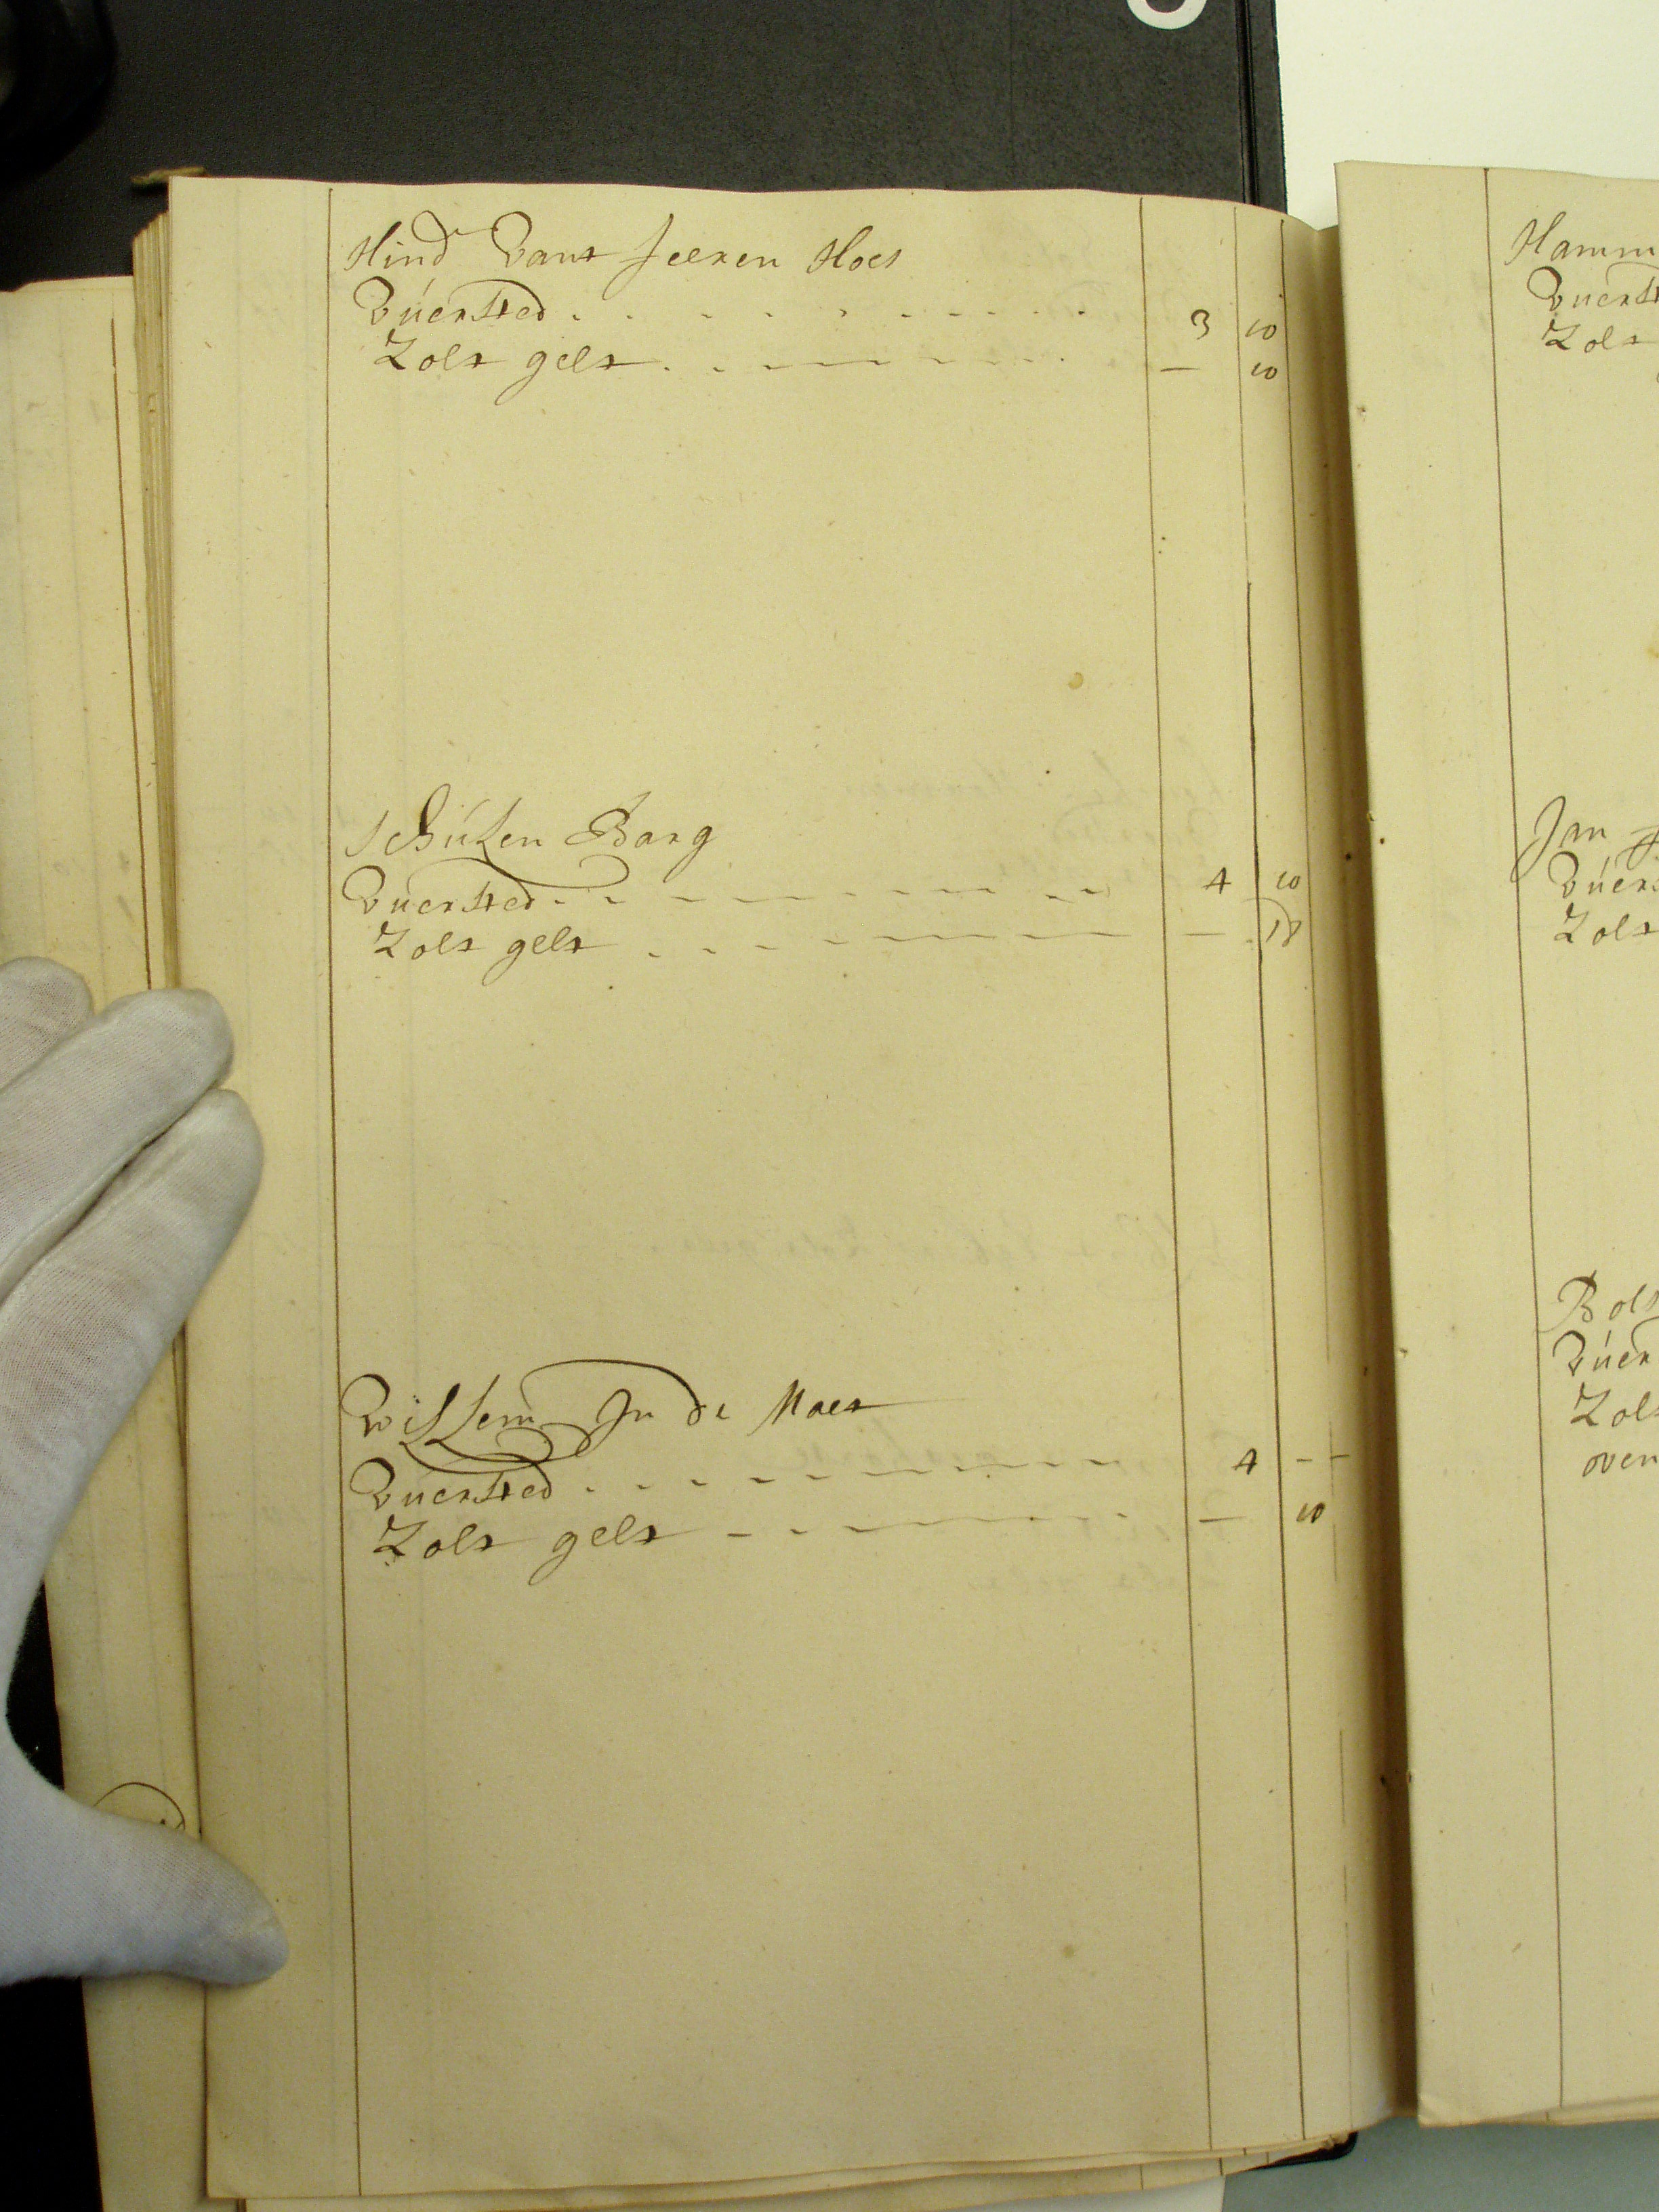 Hind Vant feeren Hoes
Vuersted 3 10
Zolt gelt — 10
Schuten Barg
Vuersted 4 10
Zolt gelt — 18
Willem In de Maet
Vuersted 4 —
Zolt gelt — 10
Hamm
Vuerst
Zolt
Jan
Vuers
Zolt
Bolt
Vuer
Zolt
oven